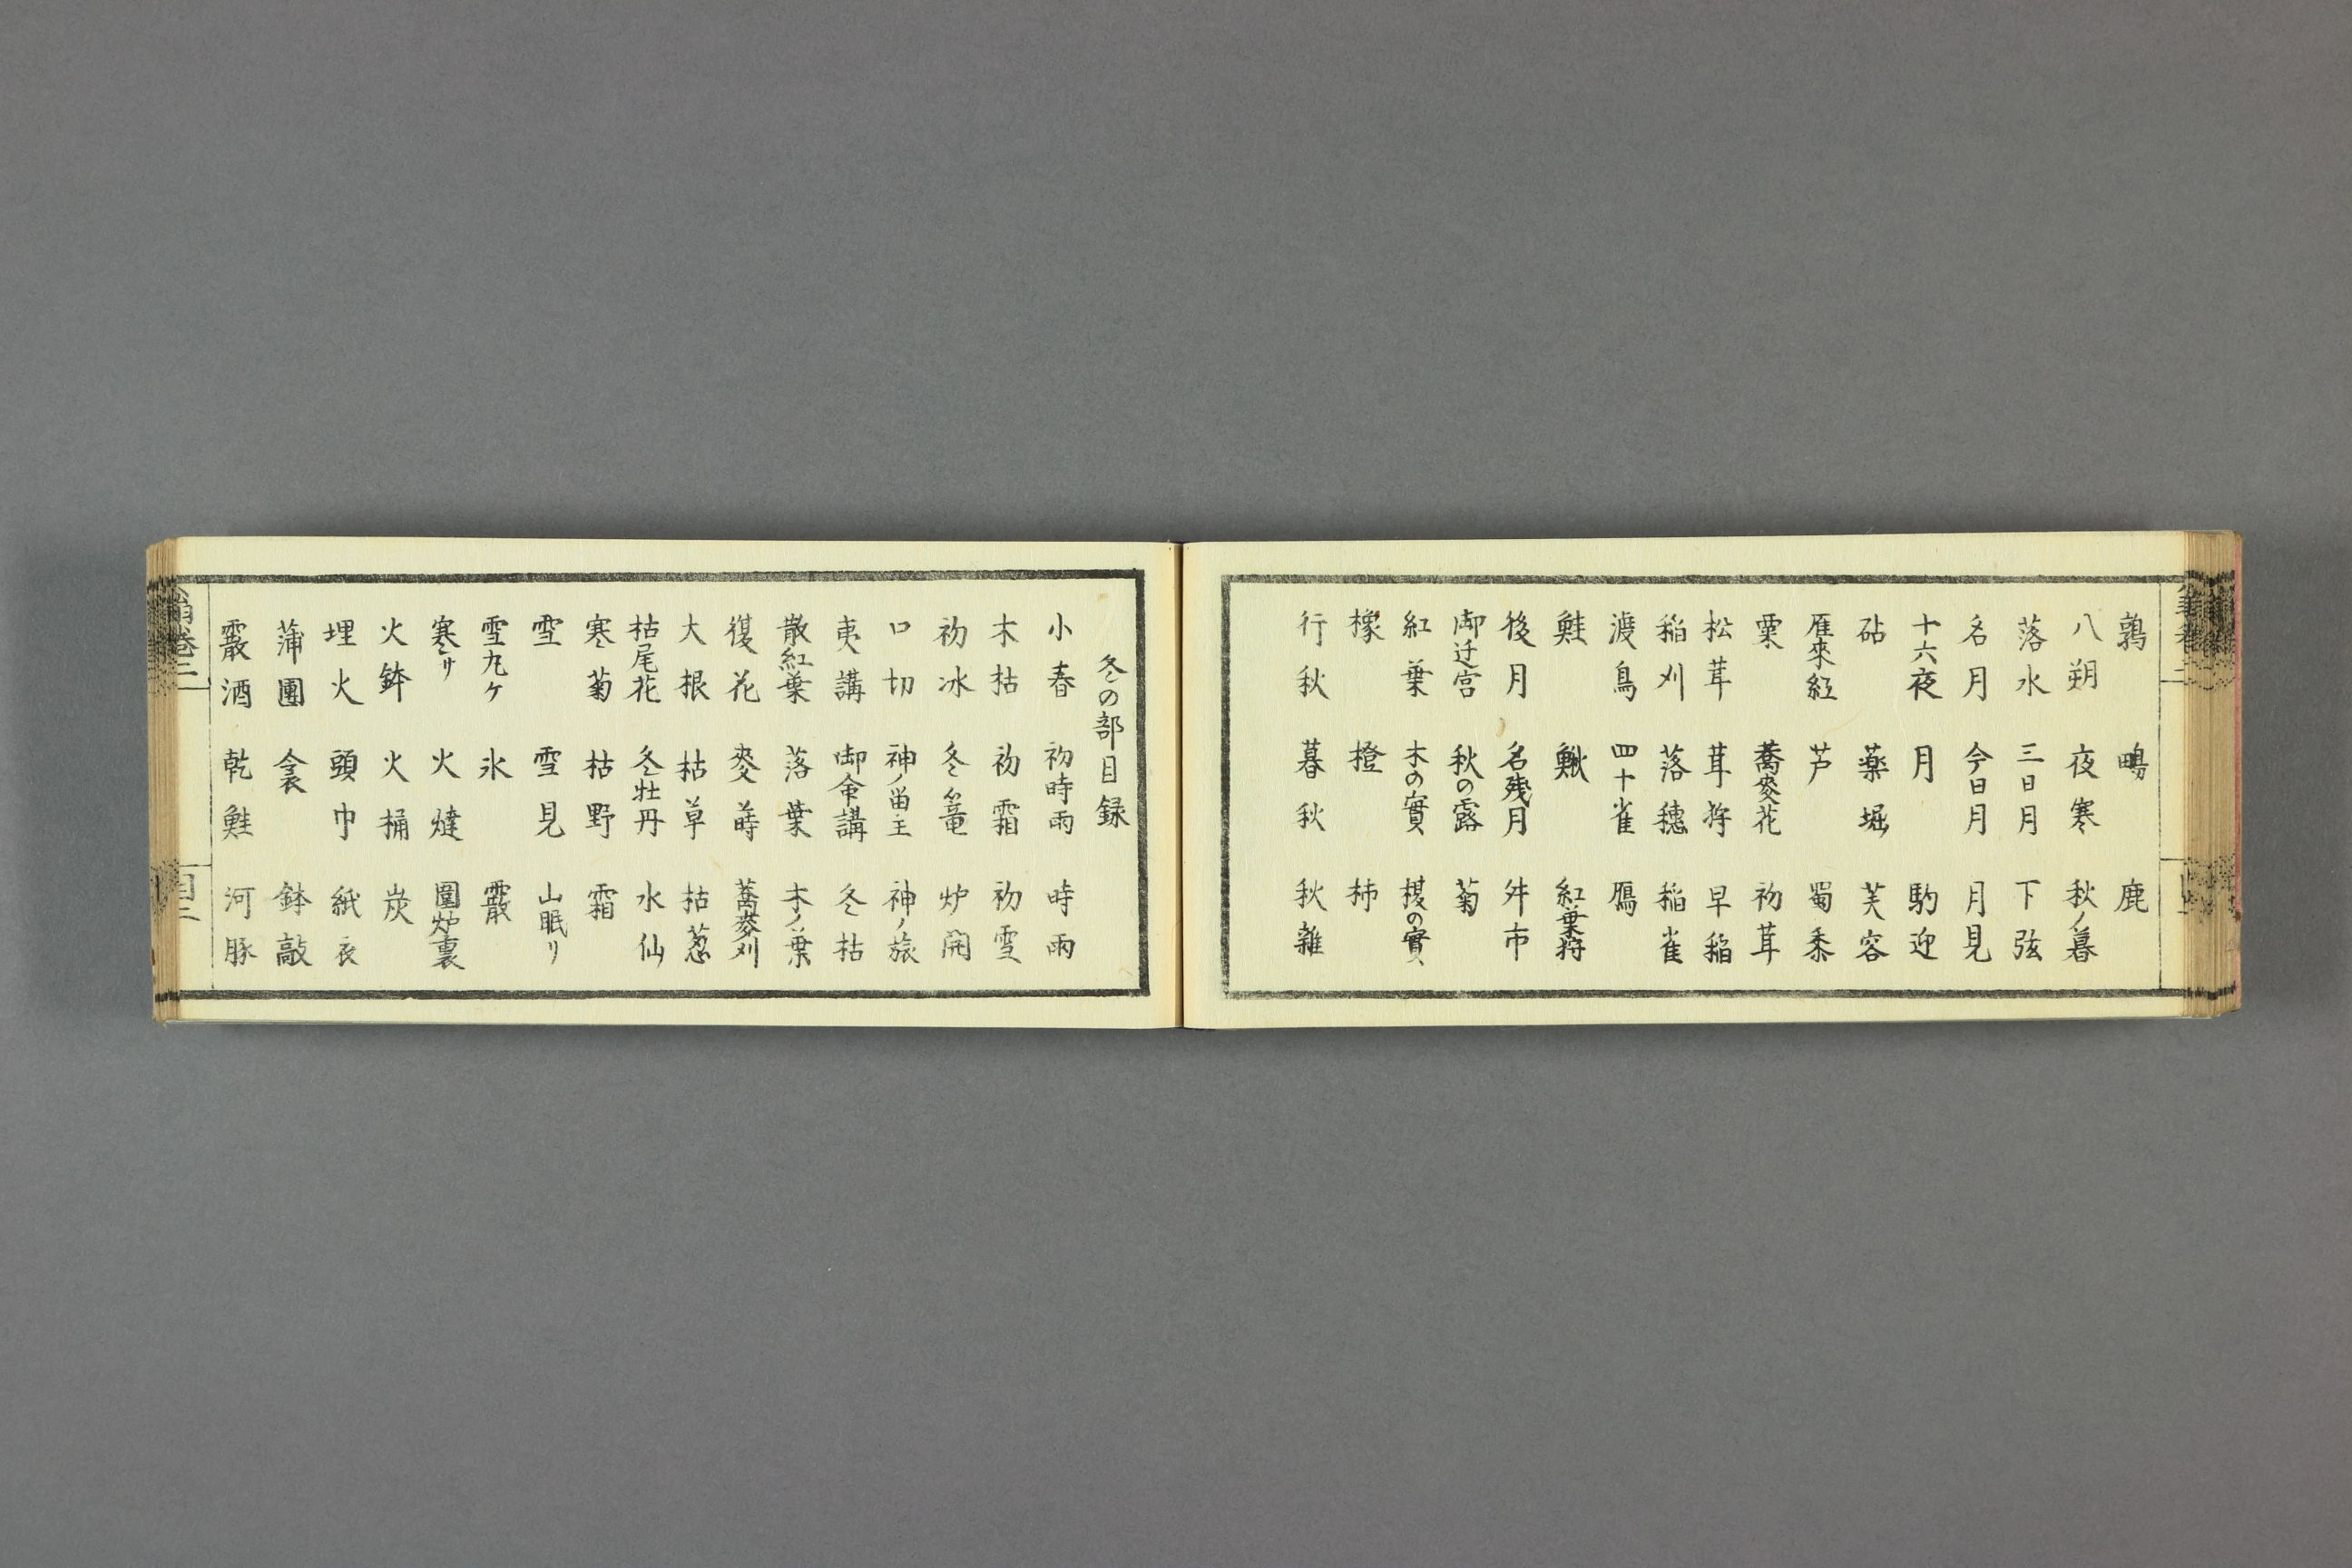 鶉 鴫 鹿
八朔 夜寒 秋ノ暮
落水 三日月 下弦
名月 今日月 月見
十六夜 月 駒迎
砧 薬堀 芙容
雁來紅 芦 蜀黍
粟 蕎麥花 初茸
松茸 茸狩 早稲
稲刈 落穂 稲雀
渡鳥 四十雀 鴈
鮭 鰍 紅葉狩
後月 名残月 舛市
御迁宮 秋の露 菊
紅葉 木の實 榎の實
橡 橙 柿
行秋 暮秋 秋雑
冬の部目録
小春 初時雨 時雨
木枯 初霜 初雪
初冰 冬篭 炉開
口切 神ノ畄主 神ノ旅
夷講 御命講 冬枯
散紅葉 落葉 木ノ葉
復花 麥蒔 蕎麥刈
大根 枯草 枯葱
枯尾花 冬牡丹 水仙
寒菊 枯野 霜
雪 雪見 山眠リ
雪丸ケ 氷 霰
寒サ 火燵 圍炉裏
火鉢 火桶 炭
埋火 頭巾 紙衣
蒲團 衾 鉢敲
霰酒 乾鮭 河豚